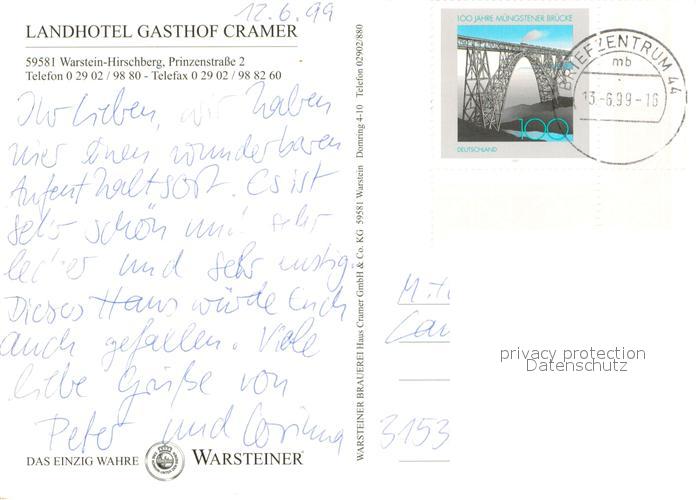 12.6.99
LANDHOTEL GASTHOF CRAMER
59581 Warstein-Hirschberg, Prinzenstraße 2
Telefon 0 29 02 / 98 80 - Telefax 0 29 02 / 98 82 60
Ihr Lieben, wir haben
hier einen wunderbaren
Aufenthaltsort. Es ist
sehr schön und sehr
lecker und sehr lustig.
Dieses Haus würde Euch
auch gefallen. Viele
liebe Grüße von
Peter und Corinna
DAS EINZIG WAHRE WARSTEINER
WARSTEINER BRAUEREI Haus Cramer GmbH & Co. KG 59581 Warstein Domring 4-10 Telefon 02902/880
100 JAHRE MÜNGSTENER BRÜCKE
100
DEUTSCHLAND
BRIEFZENTRUM 44
mb
13.-6.99-16
3153
privacy protection
Datenschutz